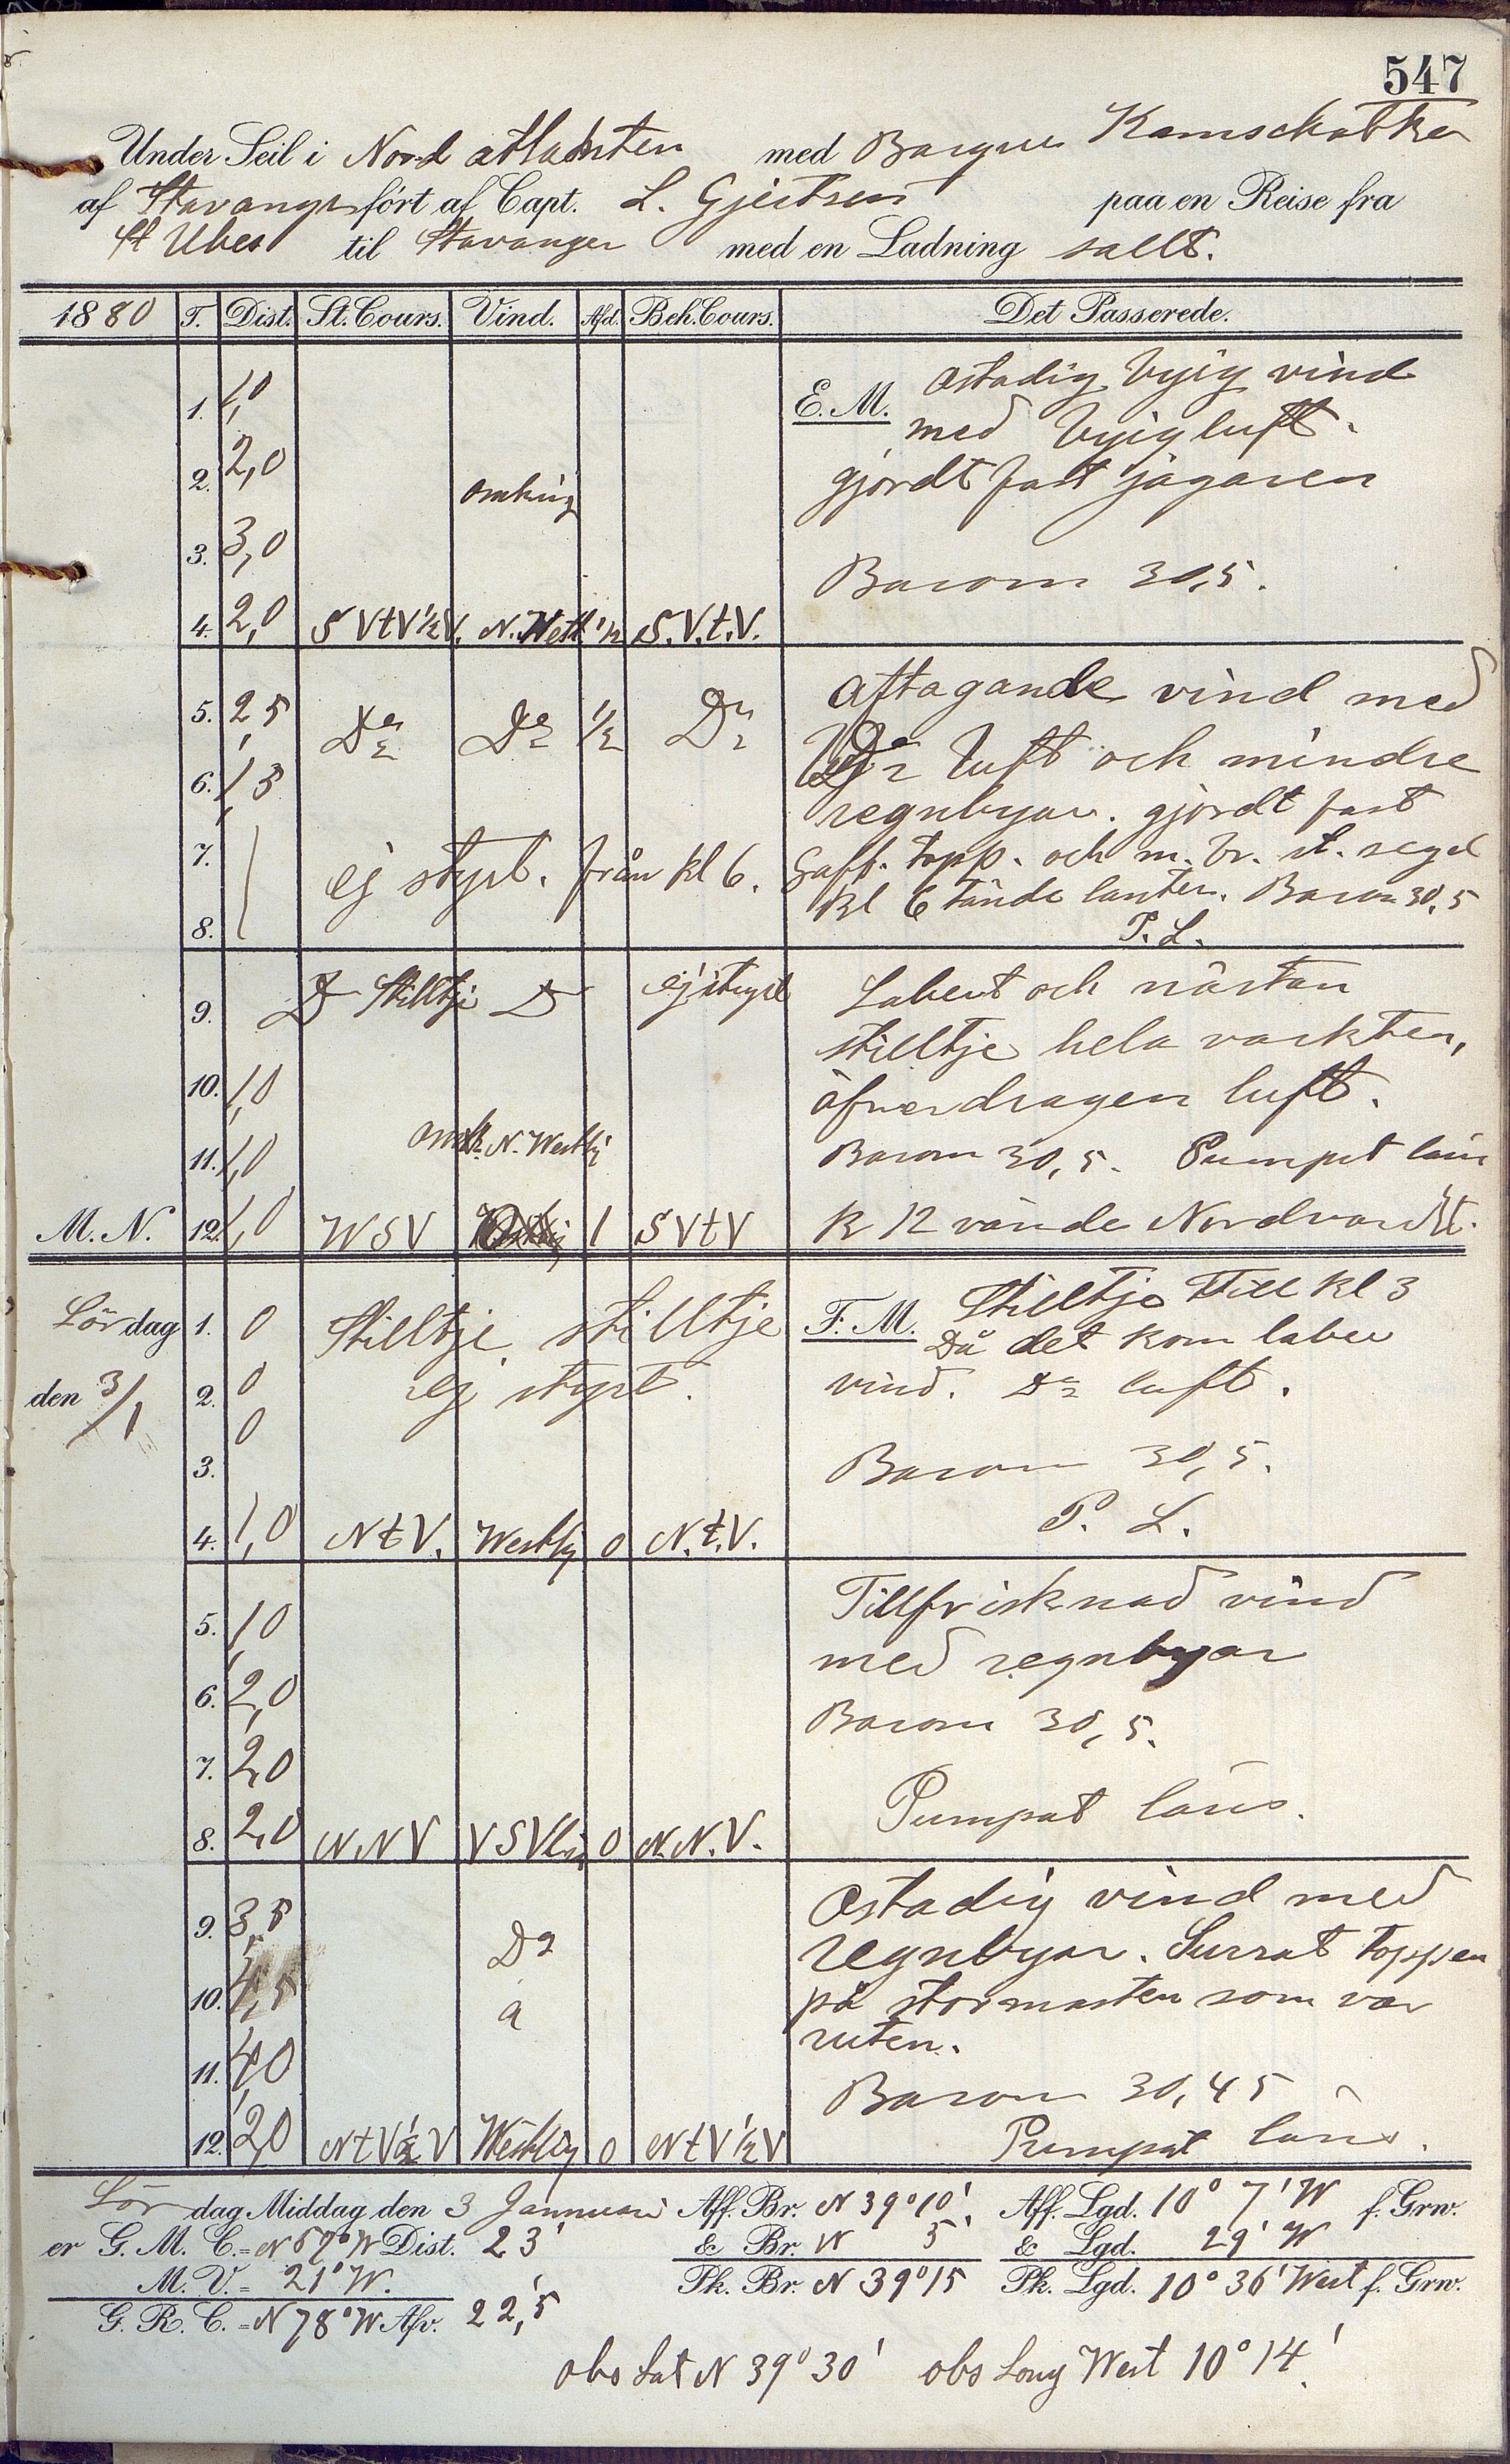 547
Under Seil i Nord atlanten med Barque Kamschatka
af Stavanger fört af Capt. L. Gjertsen paa en Reise fra
St Ubes til Stavanger med en Ladning sallt.
1880 T. Dist. St. Cours. Vind. Afd. Beh. Cours. Det Passerede.
E. M. ostadig byig vind
1. 1,0 med byig luft.
2. 2,0 omkring gjordt fast jagaren
3. 3,0 Barom 30,5.
4. 2,0 S V t V ½ V. N. Westl ½ S. V. t. V.
5. 2,5 Do Do ½ Do aftagande vind med
6. 1,5 Do luft och mindre
regnbyar. gjordt fast
7. ej styrt. från kl 6. Gaff. topp. och m. br. st. segel
kl 6 tände lanter. Barom 30,5
8. P. L.
9. Do Stilltje Do ej styrt Labert och nästan
stilltje hela vackten,
10. 1,0 öfverdragen luft.
11. 1,0 omk. N. Westlig Barom 30,5. Pumpet läns
M. N. 12. 1,0 W S V 1 S V t V k 12 vände Nordvardt.
Lördag 1. 0 Stilltje stilltje F. M. Stilltje till kl 3
Då det kom laber
den 3/1 2. 0 ej styrt. vind. Do luft.
3. 0 Barom 30,5.
4. 1,0 N t V. Westlig 0 N. t. V. P. L.
Tillfrisknad vind
5. 1,0 med regnbyar
6. 2,0 Barom 30,5.
7. 2,0 Pumpat läns.
8. 2,0 N N V V S Vlig 0 N. N. V.
9. 3,5 Do Ostadig vind med
regnbyar. Surrat toppen
10. 4,5 a på stormasten som var
ruten.
11. 4,0 Barom 30,45
12. 2,0 N t V ½ V Westlig 0 N t V ½ V Pumpat läns.
Lör dag Middag den 3 Januari Aff. Br. N 39° 10'. Aff. Lgd. 10° 7' W f. Grw.
er G. M. C. = N 57° W Dist. 23' & Br. N 5' & Lgd. 29' W
M. V. = 21° W. Pk. Br. N 39° 15 Pk. Lgd. 10° 36' West f. Grw.
G. R. C. = N 78° W Afv. 22,5'
obs Lat N 39° 30' obs Long West 10° 14'